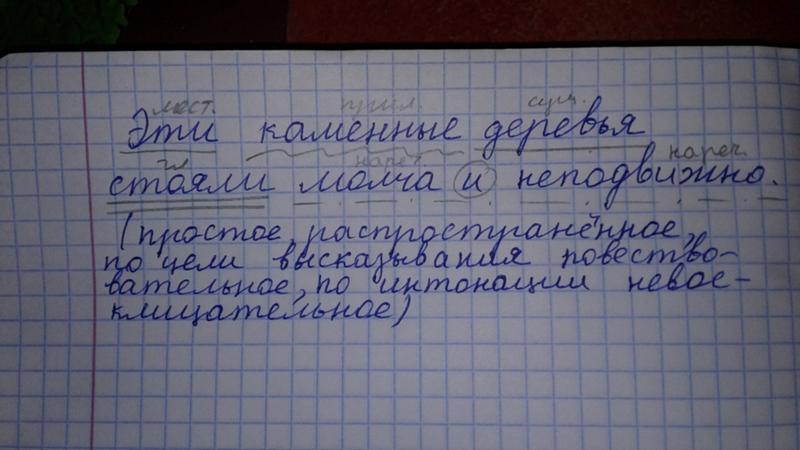 мест. прил. сущ.
Эти каменные деревья
гл нареч. нареч.
стояли молча и неподвижно.
(простое, распространённое,
по цели высказывания повество-
вательное, по интонации невос-
клицательное)